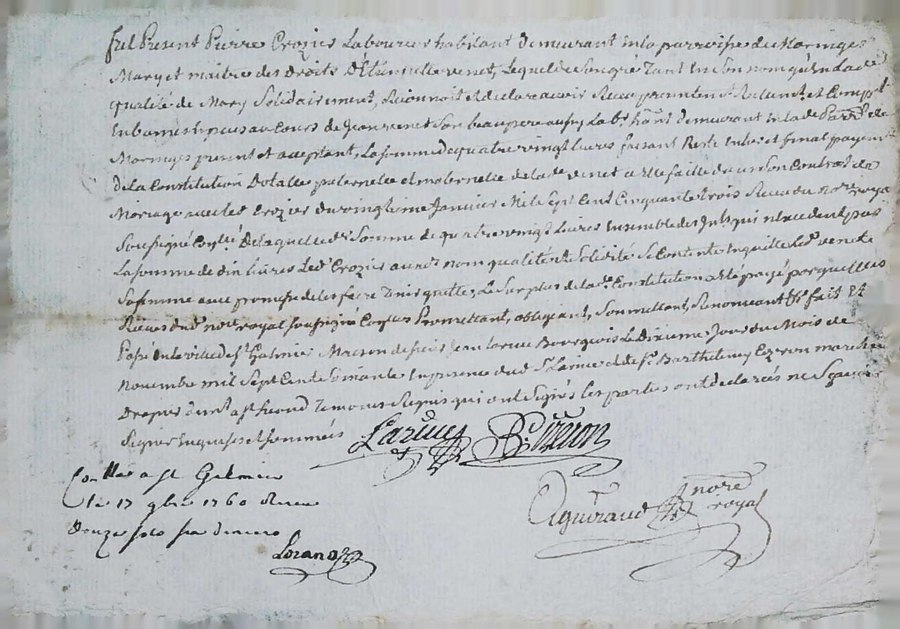 fut Present Pierre Crozier Laboureur habitant demeurant en la parroisse de Maringes
Mary et maitre des droits D'Etiennette venet, Lequel de son gré Tant en son nom qu'en lad.e
qualité de Mary Solidairement, Reconnoit et declare avoir Receu presentement et Compt.
de Jean venet son beaupere aussy Lab.r h.ant demeurant en lad.e Parr.sse de
Maringes present et acceptant, La somme de quatre vingt livres faisant Reste entier et final payement
de La Constitution Dotalle paternelle et maternelle de lad.e venet a elle faitte dans son Contract de
Mariage avec led. Crozier du vingtieme Janvier Mil Sept Cent Cinquante trois Receu du no.re royal
Soussigné de laquelle de Somme de quatre vingt Livres Ensemble des qui n'excedent pas
La somme de dix livres Led.t Crozier aud.t nom qualité et Solidité Se Contente En quitte Led.t venet et
Sa femme avec promesse de les faire Tenir quittes, Le Surplus de lad.e Constitution a été payé par quittances
Receues dud.t no.re royal soussigné Promettant, obligeant, Soumettant, Renonceant &.c fait Et
Passé En la ville de S.t Galmier Maison de Jean Larue Bourgeois Le Dixieme Jour du Mois de
Novembre mil Sept Cent Soixante En presence dud. S.r Larue et de S.r Barthelemy Cozron marchand
Drapier dud.t S.t Temoins Requis qui ont Signés les parties ont declarés ne Sçavoir
Signer Enquises et Sommées Larue B. Cozron
Con.llé a S.t Galmier
Le 17 9bre 1760 Receu
Douze sols six deniers
Loranos
Aguiraud no.re royal